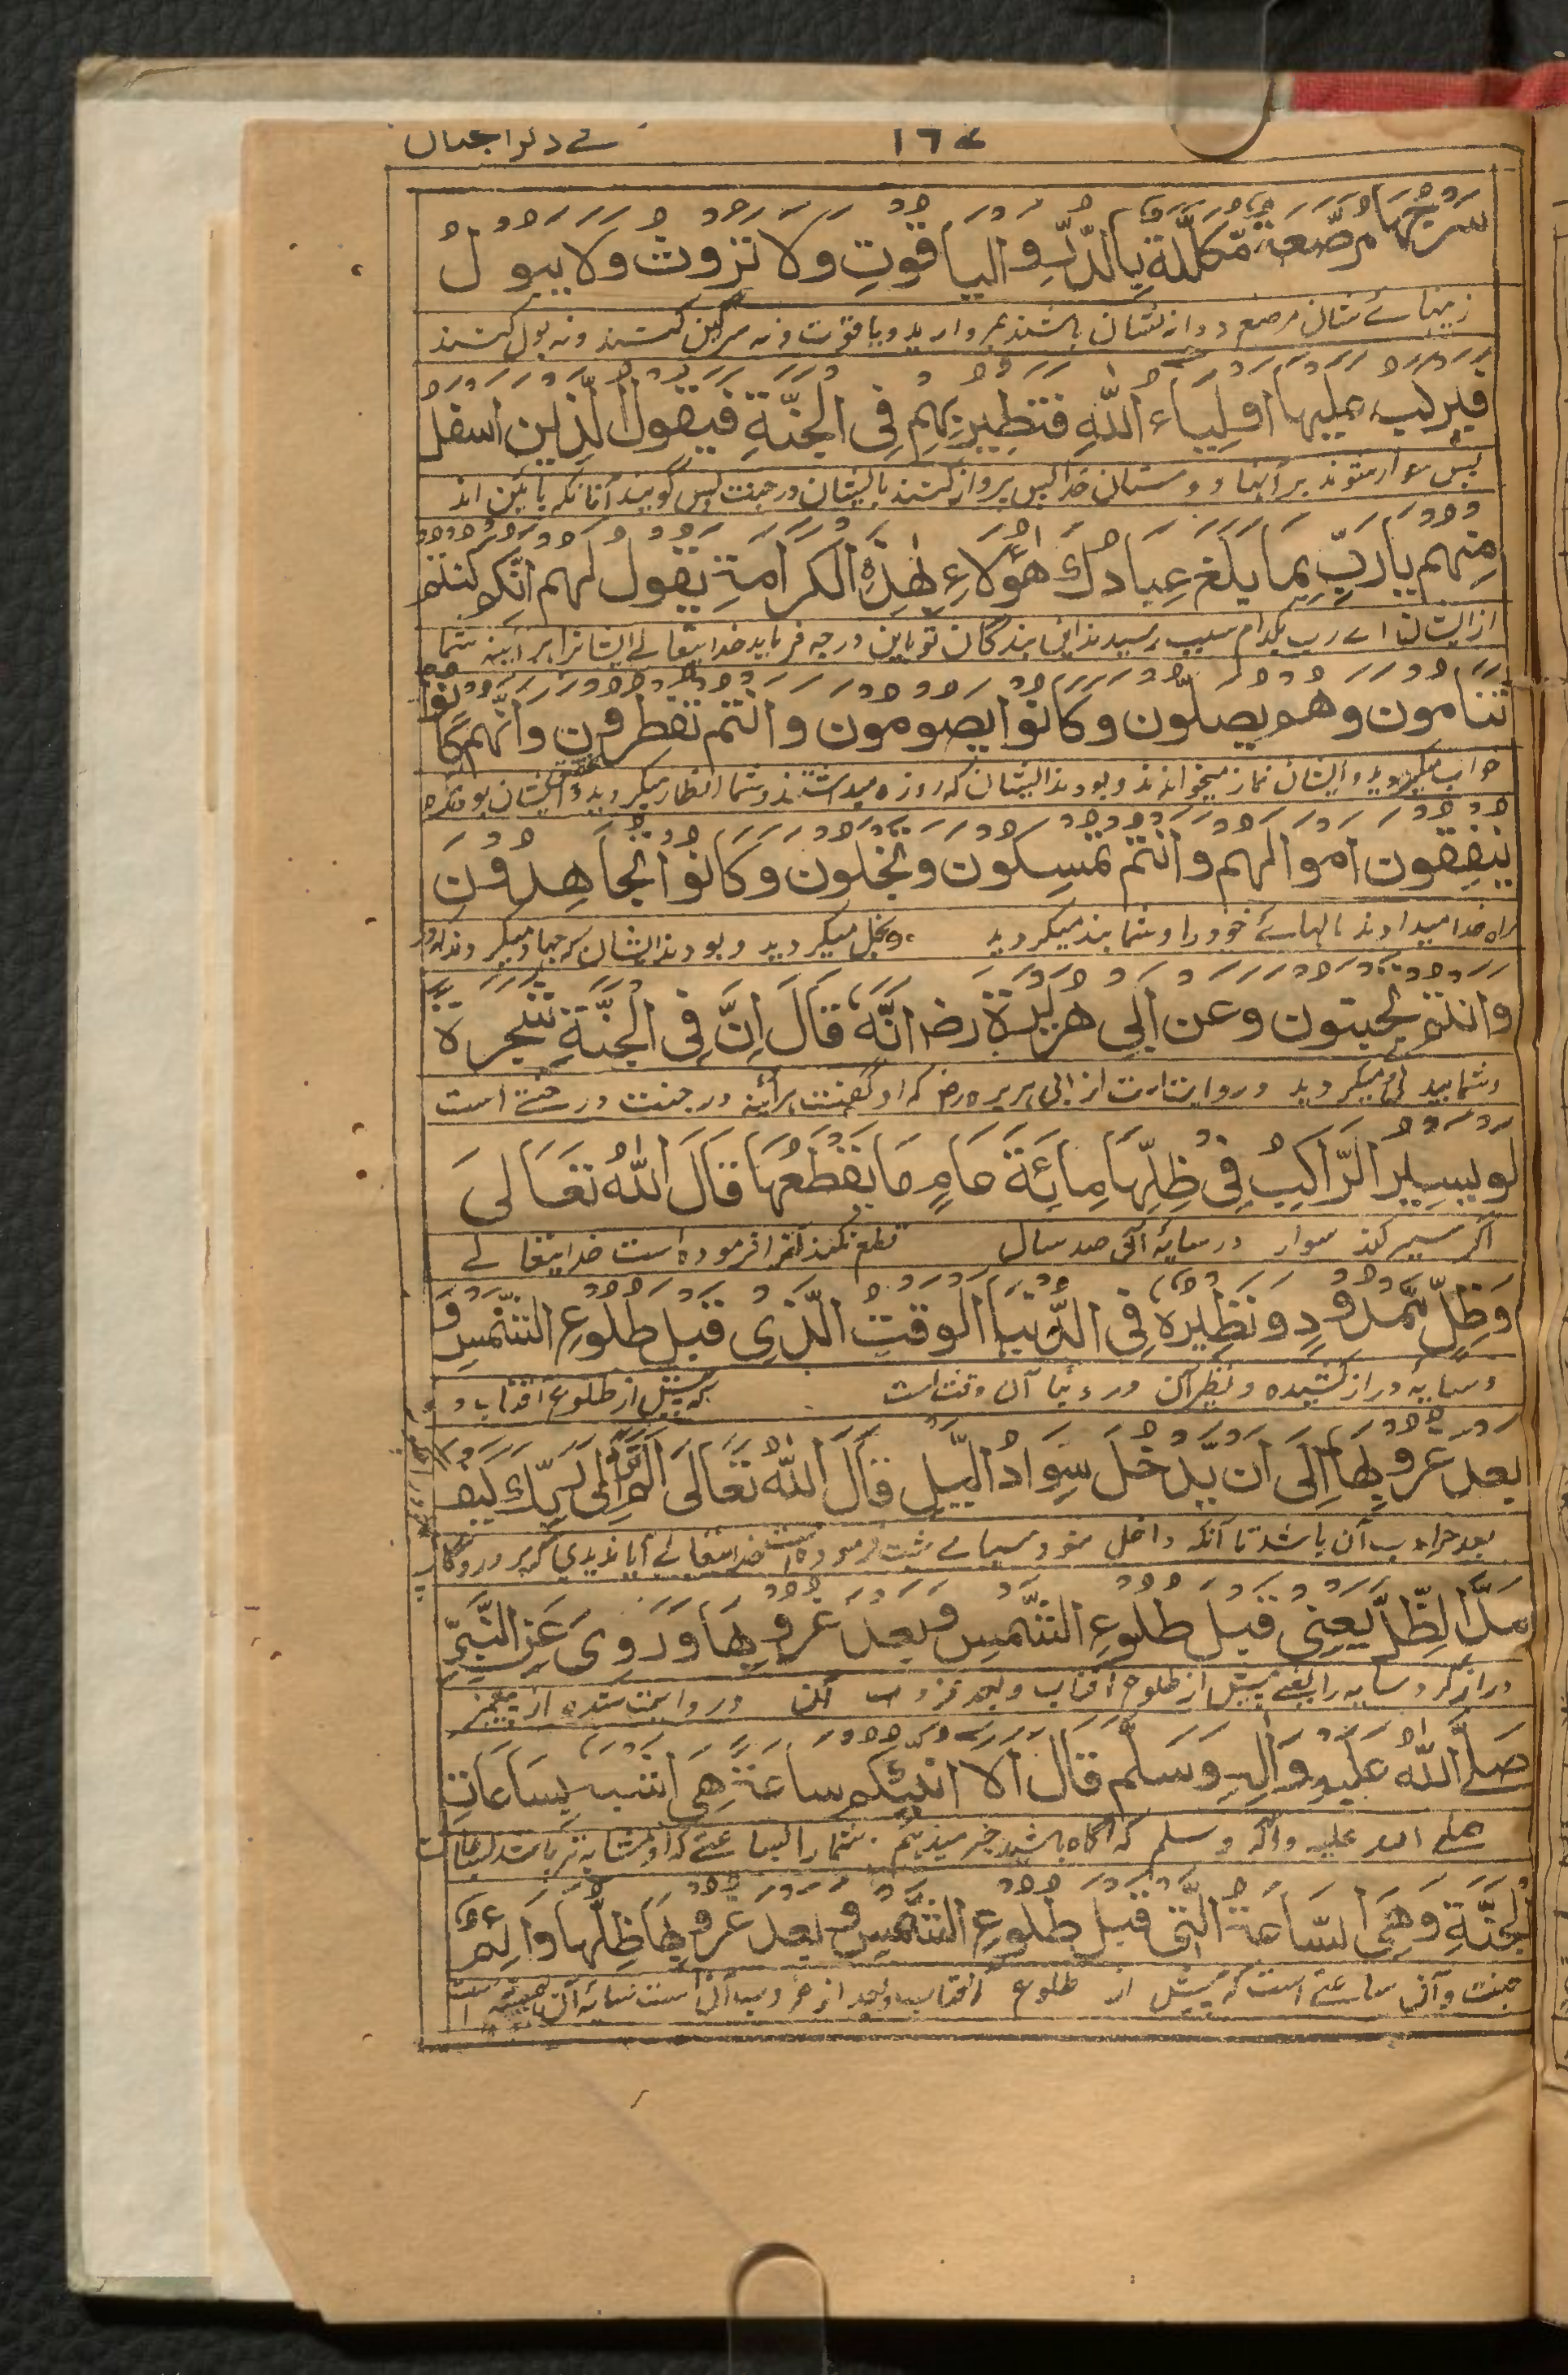 ١٦٧
في ذكر الجنان
سرجها مرصّعة مّكلّلة بالدّرّ والياقوت ولا تروث ولا يبول
زينهائے شان مرصع دوانه نشان باشند بمرواريد و ياقوت ونه سرگين كنند ونه بول كنند
فيركب عليها اولياء اللّه فتطير بهم فى الجنّة فيقول الّذين اسفل
پس سوار شوند بر آنها دوستان خدا پس پرواز كنند باايشان در جنت پس گويند آنانكه پائين اند
منهم يا ربّ بما بلغ عبادك هؤلاء بهذه الكرامة يقول لهم انّكم كنتم
از ايشان اے رب بكدام سبب رسيدند اين بندگان تو باين درجه فرمايد خدايتعالے ايشانرا هر آئينه شما
تنامون وهم يصلّون وكانوا يصومون وانتم تفطرون وانّهم كانوا
خواب ميكرديد وايشان نماز ميخواندند وبودند ايشان كه روزه ميداشتند وشما افطار ميكرديد وايشان بودند كه
ينفقون اموالهم وانتم تمسكون وتبخلون وكانوا يجاهدون
راه خدا ميدادند مالهائے خود را وشما بند ميكرديد وبخل ميكرديد وبودند ايشان كه جهاد ميكردند
وانتم تجبنون وعن ابى هريرة رضـ انّه قال انّ فى الجنّة شجرة
وشما بيدلى ميكرديد و روايت است از ابى هريره رضـ كه او گفت هر آئينه در جنت درختے است
لو يسير الرّاكب فى ظلّها مائة عام ما يقطعها قال اللّه تعالى
اگر سير كند سوار در سايۀ آن صد سال قطع نكند آنرا فرموده است خدايتعالے
وظلّ مّمدود ونظيره فى الدّنيا الوقت الّذى قبل طلوع الشّمس و
وسايه دراز كشيده ونظير آن در دنيا آن وقت است كه پيش از طلوع آفتاب و
بعد غروبها الى ان يّدخل سواد اللّيل قال اللّه تعالى الم تر الى ربّك كيف
بعد غروب آن باشد تا آنكه داخل شود سياهے شب فرموده است خدايتعالے آيا نديدى
مدّ الظّلّ يعنى قبل طلوع الشّمس وبعد غروبها وروى عن النّبىّ
دراز كرد سايه را يعنے پيش از طلوع آفتاب وبعد غروب آن و روايت شده از پيغمبر
صلّے اللّه عليه واله وسلّم قال الا انبّئكم ساعة هى اشبه بساعات
صلے الله عليه وآله وسلم كه آگاه باشيد خبر ميدهم شما را بساعتے كه او مشابه تر باشد بساعات
الجنّة وهى السّاعة الّتى قبل طلوع الشّمس وبعد غروبها ظلّها دائم
جنت وآن ساعتے است كه پيش از طلوع آفتاب وبعد از غروب آن است سايۀ آن هميشه است